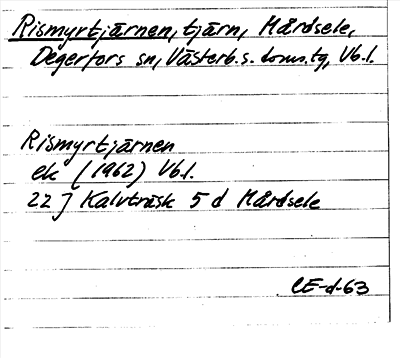 Rismyrtjärnen, tjärn, Mårdsele,
Degerfors sn, Västerb.s. doms.tg, Vb.l.
Rismyrtjärnen
ek (1962) Vb.l.
22 J Kalvträsk 5 d Mårdsele
CE-d-63